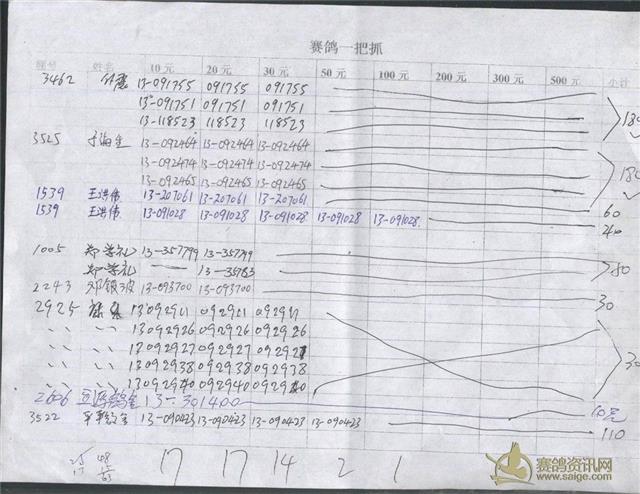 赛鸽一把抓
棚号 姓名 10元 20元 30元 50元 100元 200元 300元 500元 小计
3462 13-091755 091755 091755
13-091751 091751 091751
13-118523 118523 118523 180
3525 13-092464 13-092464 13-092464
13-092474 13-092474 13-092474 180
13-092465 13-092465 13-092465
1539 王洪伟 13-207061 13-207061 13-207061 60
1539 王洪伟 13-091028 13-091028 13-091028 13-091028 13-091028 210
1005 郑学礼 13-357799 13-357799
郑学礼 — 13-35783 80
2243 邓银波 13-093700 13-093700 30
2925 13092911 092911 092911
、、 、、 13092926 092926 092926
、、 、、 13092927 092927 092927 30
、、 、、 13092938 092938 092938
、、 、、 13092940 092940 092940
2606 13-301400
3522 13-090423 13-090423 13-090423 13-090423 110
17 17 14 2 1
赛鸽资讯网
www.saige.com